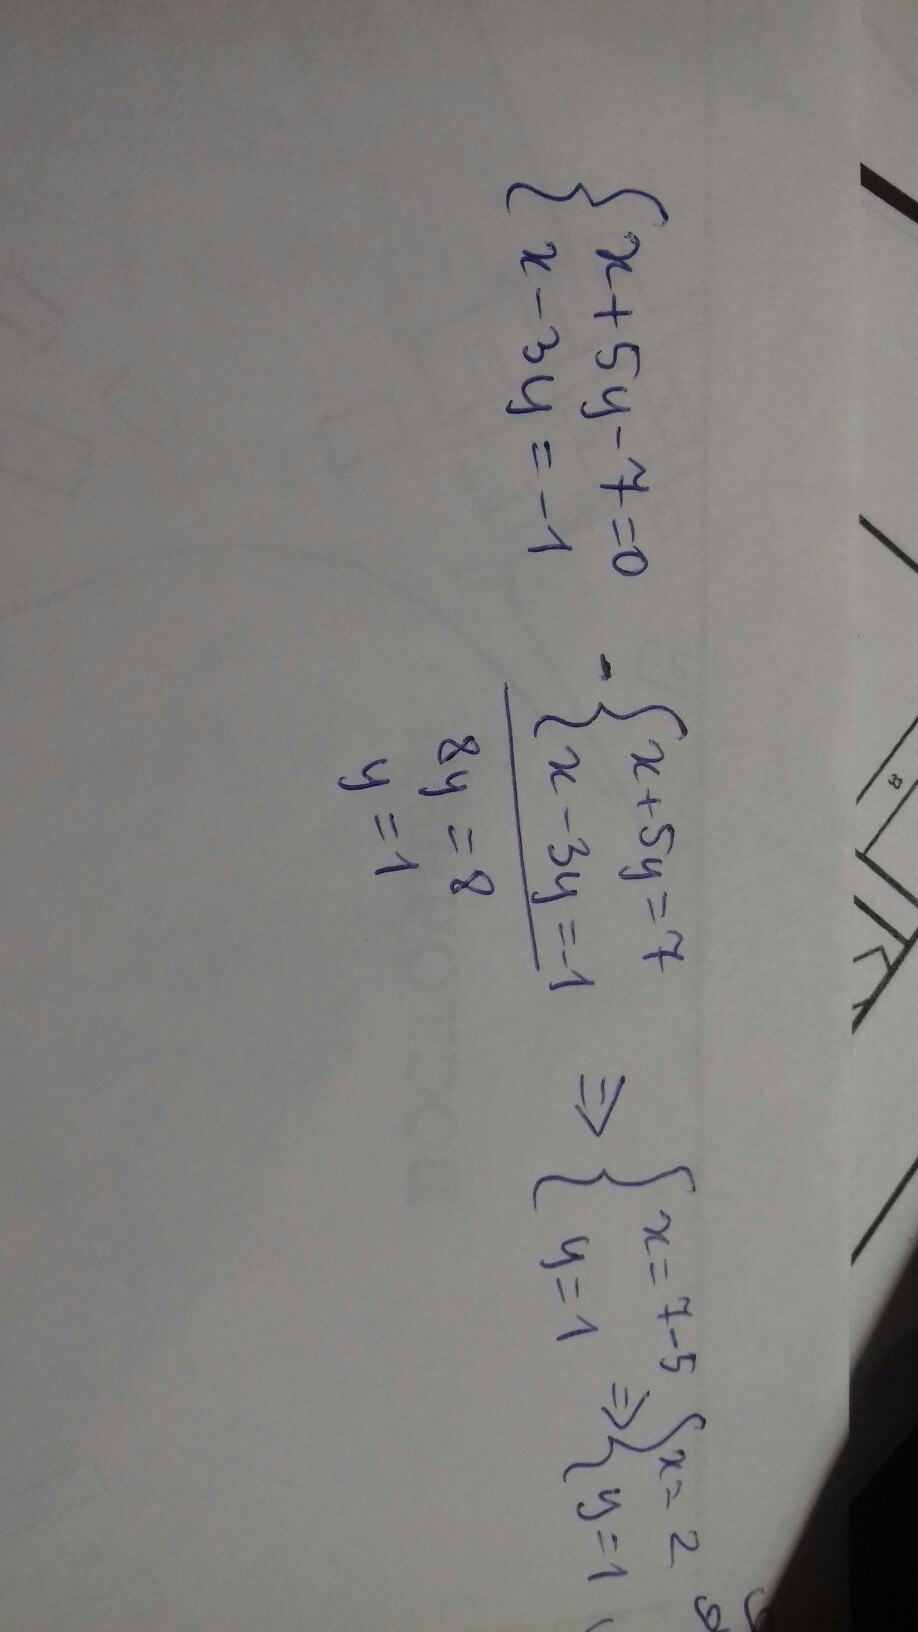 { x + 5y - 7 = 0
x - 3y = -1
- { x + 5y = 7
x - 3y = -1
8y = 8
y = 1
⇒ { x = 7 - 5
y = 1
⇒ { x = 2
y = 1
8